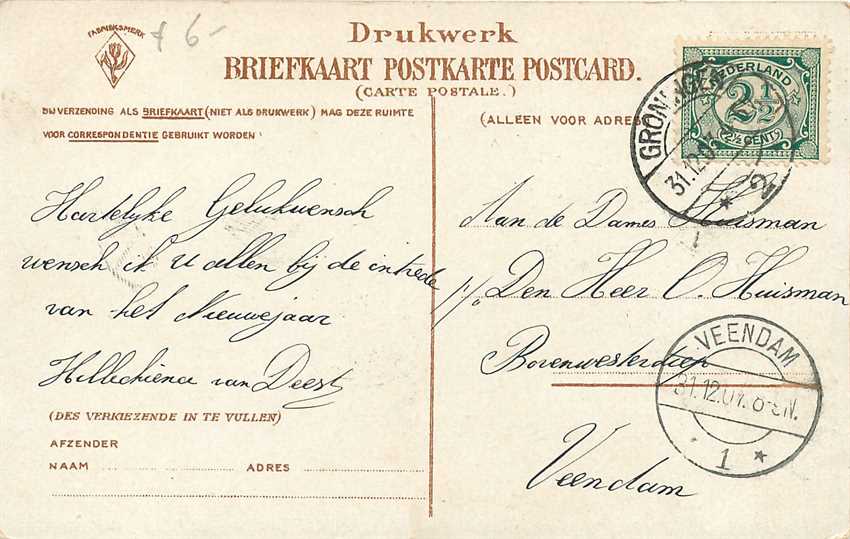 FABRIEKSMERK
f 6-
Drukwerk
BRIEFKAART POSTKARTE POSTCARD.
(CARTE POSTALE.)
BIJ VERZENDING ALS BRIEFKAART (NIET ALS DRUKWERK) MAG DEZE RUIMTE
VOOR CORRESPONDENTIE GEBRUIKT WORDEN
(ALLEEN VOOR ADRES
NEDERLAND
2½
(2½ CENT)
GRONINGEN
31.12.07
2
Hartelijke Gelukwensch
wensch ik u allen bij de intrede
van het Nieuwejaar
Hillechiena van Deest
(DES VERKIEZENDE IN TE VULLEN)
AFZENDER
NAAM ADRES
Aan de Dames Huisman
p/a Den Heer O. Huisman
Bovenwesterdiep
Veendam
VEENDAM
31.12.07. 8-N.
1